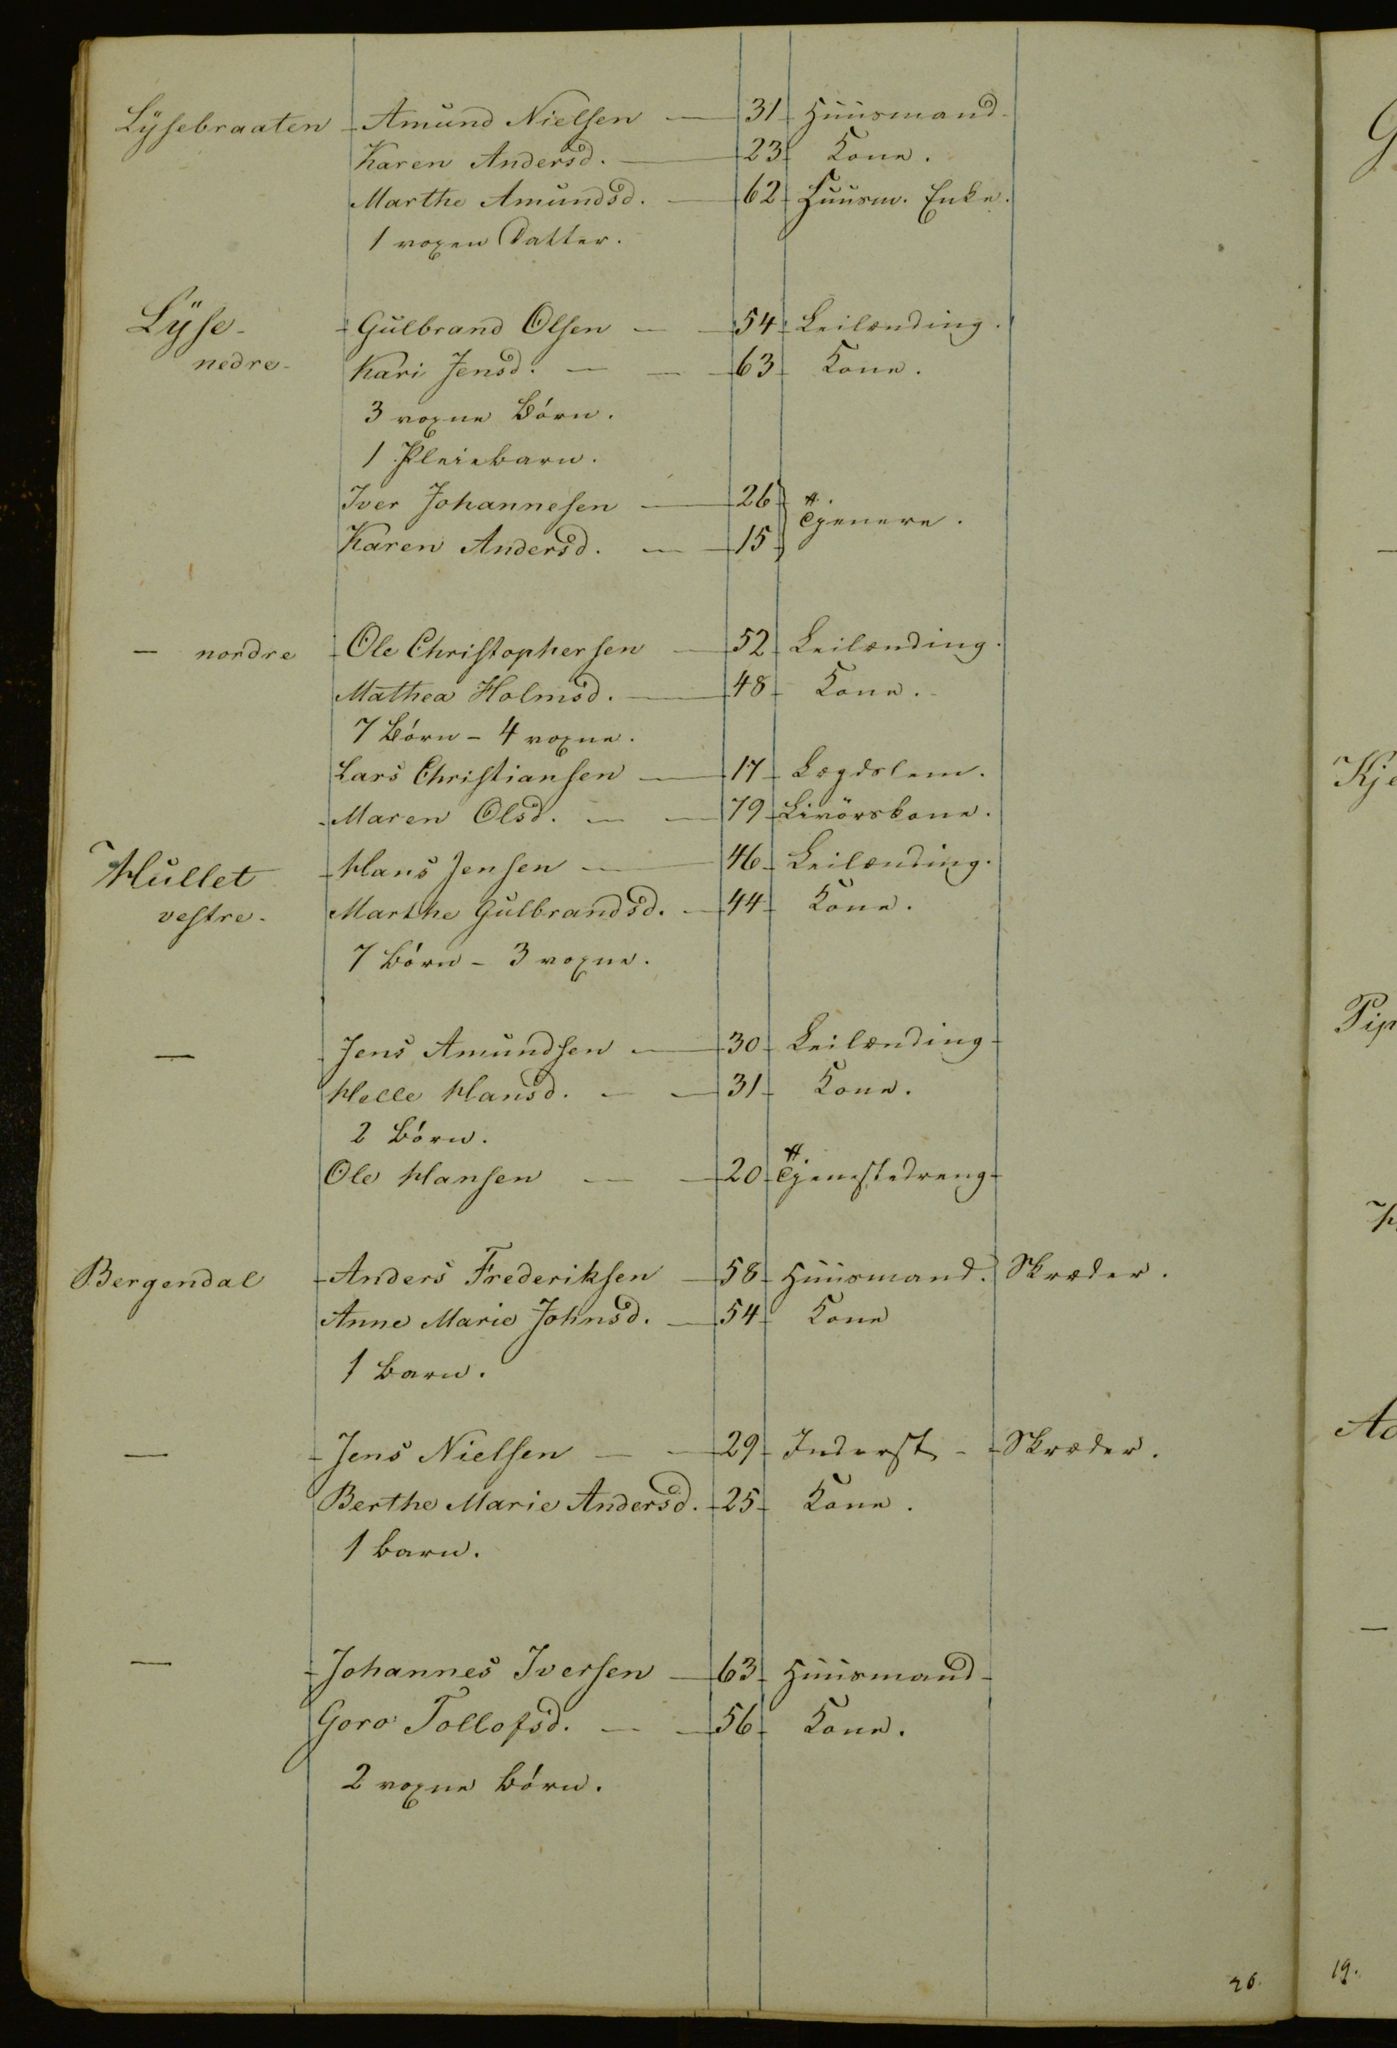 Lÿsebraaten - Amund Nielsen — 31 - Huusmand.
Karen Andersd. — 23 - Kone.
Marthe Amundsd. — 62 - Huusm. Enke.
1 voxen Datter.
Lÿse - - Gulbrand Olsen — — 54 - Leilænding.
nedre - Kari Jensd. — — 63 - Kone.
3 voxne Börn.
1 Pleiebarn.
Iver Johannesen — 26 } Tjenere.
Karen Andersd. — 15 }
— nordre - Ole Christophersen — 52 - Leilænding.
Mathea Holmsd. — 48 - Kone.
7 Börn - 4 voxne.
Lars Christiansen — 17 - Lægdslem.
- Maren Olsd. — — 79 - Livörskone.
Hullet - Hans Jensen — 46 - Leilænding.
vestre - Marthe Gulbrandsd. — 44 - Kone.
7 Börn - 3 voxne.
— - Jens Amundsen — 30 - Leilænding -
Helle Hansd. — — 31 - Kone.
2 Börn.
Ole Hansen — — 20 - Tjenestedreng -
Bergendal - Anders Frederiksen — 58 - Huusmand. Skræder.
Anne Marie Johnsd. — 54 - Kone
1 Barn.
— - Jens Nielsen — — 29 - Inderst - - Skræder.
Berthe Marie Andersd. - 25 - Kone.
1 Barn.
— - Johannes Iversen — 63 - Huusmand -
Goro Tollofsd. — — 56 - Kone.
2 voxne Börn.
26.
19.